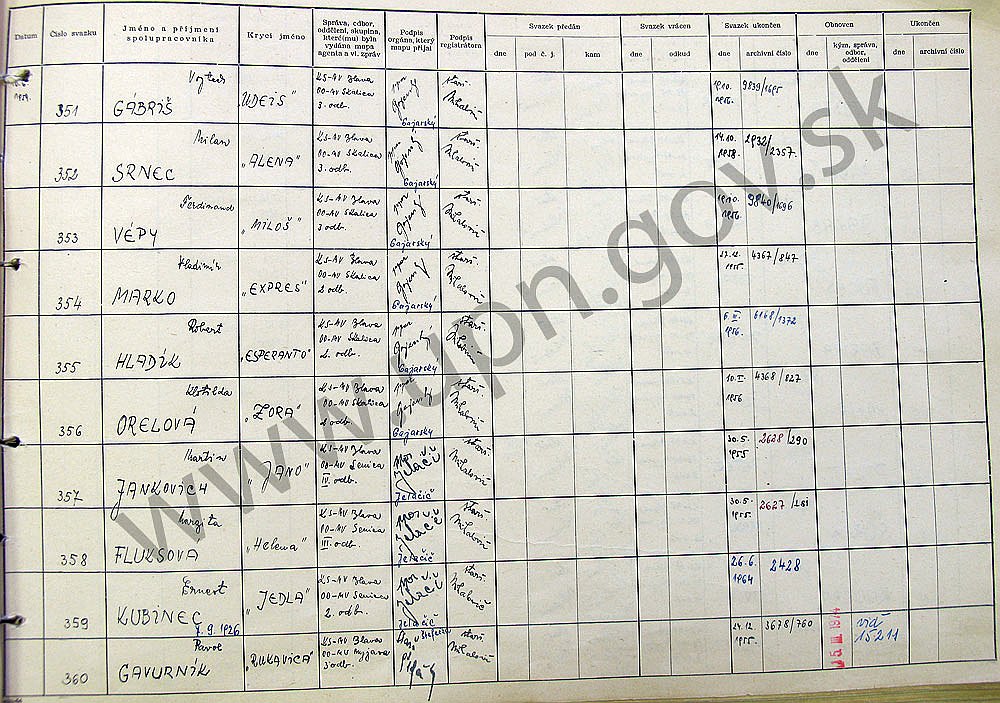 Datum
Číslo svazku
Jméno a příjmení spolupracovníka
Krycí jméno
Správa, odbor, oddělení, skupina, které(mu) byla vydána mapa agenta a vl. zpráv
Podpis orgána, který mapu přijal
Podpis registrátora
Svazek předán
dne
pod č. j.
kam
Svazek vrácen
dne
odkud
Svazek ukončen
dne
archivní číslo
Obnoven
dne
kým, správa, odbor, oddělení
Ukončen
dne
archivní číslo
351
Vojtech
GÁBRIŠ
"UDEIS"
KS-MV Blava
OO-MV Skalica
3. odb.
Gajarský
19.10.
1956.
9839/1695
352
Milan
SRNEC
"ALENA"
KS-MV Blava
OO-MV Skalica
3. odb.
Gajarský
14.10.
1958.
2932/2357.
353
Ferdinand
VÉPY
"MILOŠ"
KS-MV Blava
OO-MV Skalica
3 odb.
Gajarský
19.10.
1956
9840/1696
354
Vladimír
MARKO
"EXPRES"
KS-MV Blava
OO-MV Skalica
2 odb.
Gajarský
27.12.
1955.
4367/847
355
Robert
HLADÍK
"ESPERANTO"
KS-MV Blava
OO-MV Skalica
2. odb.
Gajarský
1956.
6168/1372
356
Klotilda
ORELOVÁ
"ZORA"
KS-MV Blava
OO-MV Skalica
2 odb.
Gajarský
10. I.
1956
4368/827
357
Martin
JANKOVICH
"JANO"
KS-MV Blava
OO-MV Senica
IV. odb.
Jelačič
30.5.
1955.
2628/290
358
Margita
FLUKSOVA
"Helena"
KS-MV Blava
OO-MV Senica
III. odb.
Jelačič
30.5.
1955.
2627
359
Ernest
KUBINEC
7.9.1926
"JEDLA"
KS-MV Blava
OO-MV Senica
2. odb.
Jelačič
26.6.
1964
2428
360
Pavol
GAVURNÍK
"RUKAVICA"
KS-MV Blava
OO-MV Myjava
3 odb.
24.12.
1955.
3678/760
viď
15211
www.upn.gov.sk